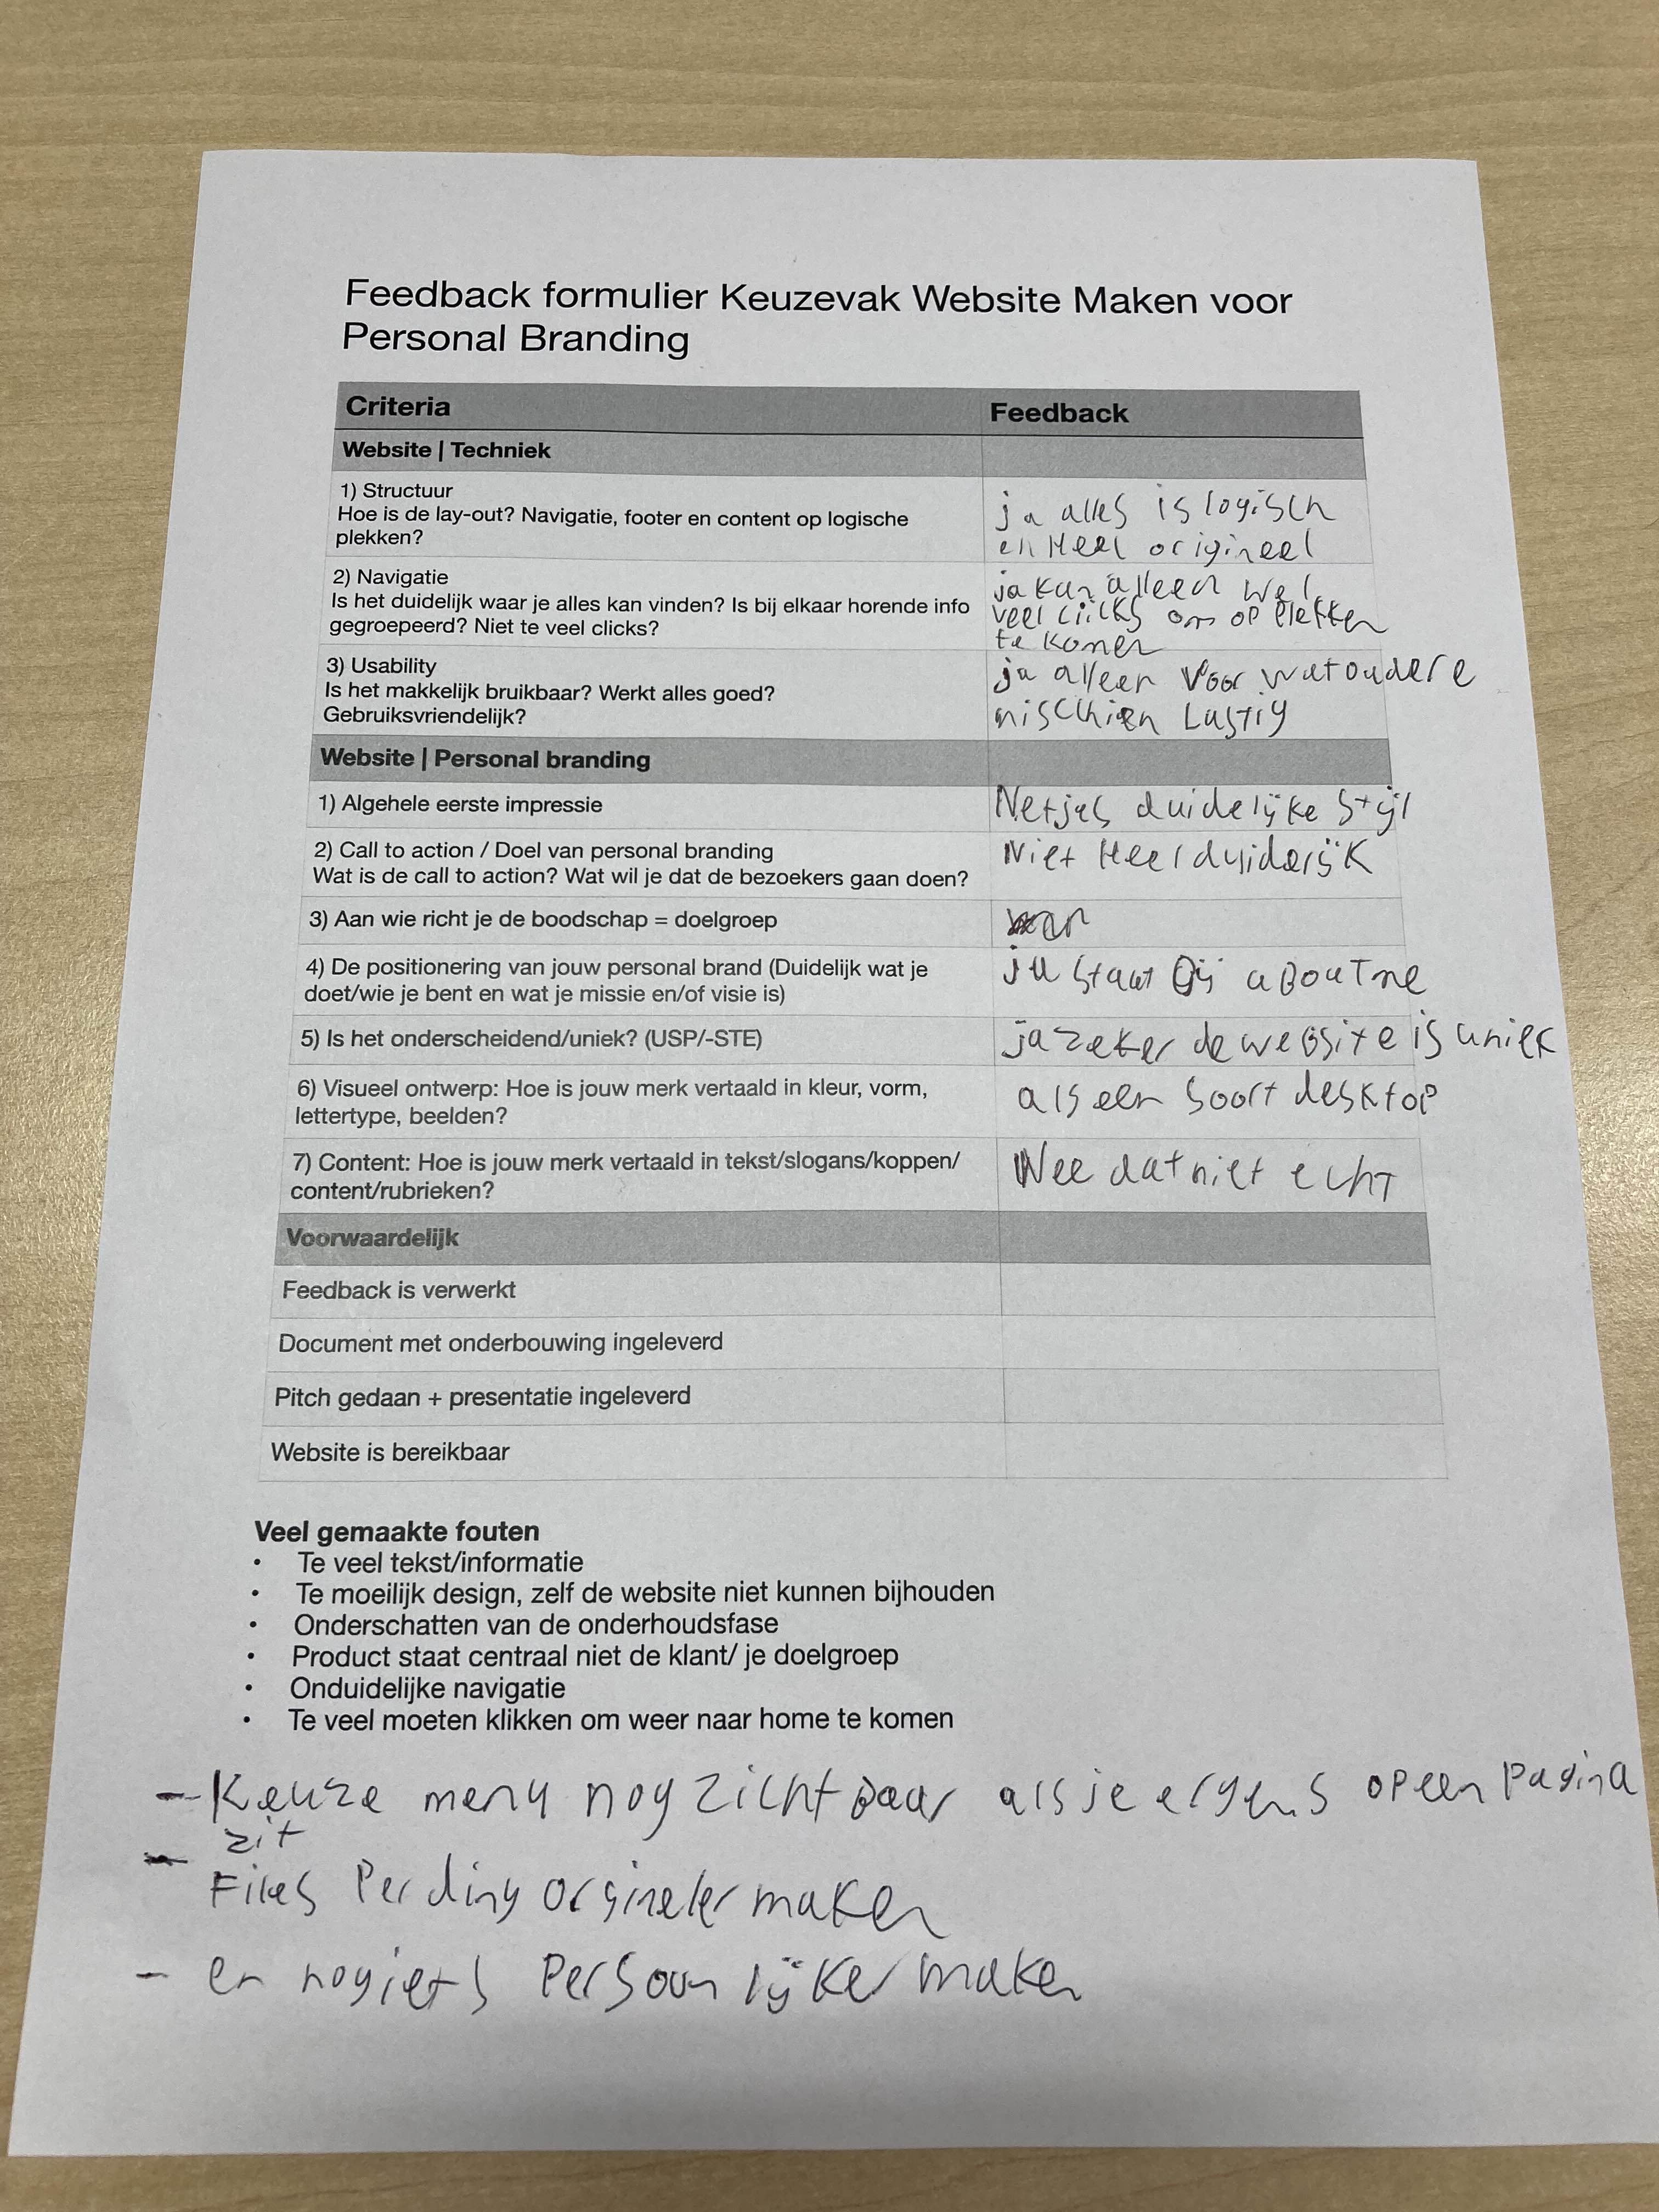 Feedback formulier Keuzevak Website Maken voor
Personal Branding
Criteria
Feedback
Website | Techniek
1) Structuur
Hoe is de lay-out? Navigatie, footer en content op logische
plekken?
ja alles is logisch
en Heel origineel
2) Navigatie
Is het duidelijk waar je alles kan vinden? Is bij elkaar horende info
gegroepeerd? Niet te veel clicks?
ja kan alleen wel
veel clicks om op plekken
te komen
3) Usability
Is het makkelijk bruikbaar? Werkt alles goed?
Gebruiksvriendelijk?
ja alleen voor wat oudere
mischien Lastig
Website | Personal branding
1) Algehele eerste impressie
Netjes duidelijke stijl
2) Call to action / Doel van personal branding
Wat is de call to action? Wat wil je dat de bezoekers gaan doen?
Niet Heel duidelijk
3) Aan wie richt je de boodschap = doelgroep
4) De positionering van jouw personal brand (Duidelijk wat je
doet/wie je bent en wat je missie en/of visie is)
ja staat bij about me
5) Is het onderscheidend/uniek? (USP/-STE)
ja zeker de website is uniek
6) Visueel ontwerp: Hoe is jouw merk vertaald in kleur, vorm,
lettertype, beelden?
als een soort desktop
7) Content: Hoe is jouw merk vertaald in tekst/slogans/koppen/
content/rubrieken?
Nee dat niet echt
Voorwaardelijk
Feedback is verwerkt
Document met onderbouwing ingeleverd
Pitch gedaan + presentatie ingeleverd
Website is bereikbaar
Veel gemaakte fouten
• Te veel tekst/informatie
• Te moeilijk design, zelf de website niet kunnen bijhouden
• Onderschatten van de onderhoudsfase
• Product staat centraal niet de klant/ je doelgroep
• Onduidelijke navigatie
• Te veel moeten klikken om weer naar home te komen
- Keuze menu nog zichtbaar als je ergens op een pagina
zit
- Files Per ding orgineler maken
- en nog iets Persoonlijker maken